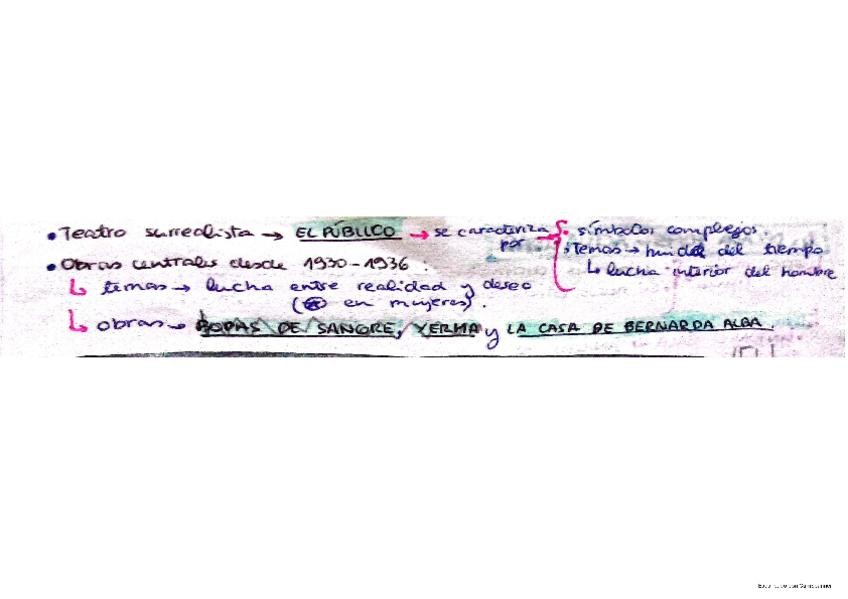 • Teatro surrealista → EL PÚBLICO → se caracteriza por → símbolos complejos.
• Temas → huida del tiempo
↳ lucha interior del hombre
• Obras centrales desde 1930-1936.
↳ temas → lucha entre realidad y deseo
( en mujeres).
↳ obras → BODAS DE SANGRE, YERMA y LA CASA DE BERNARDA ALBA.